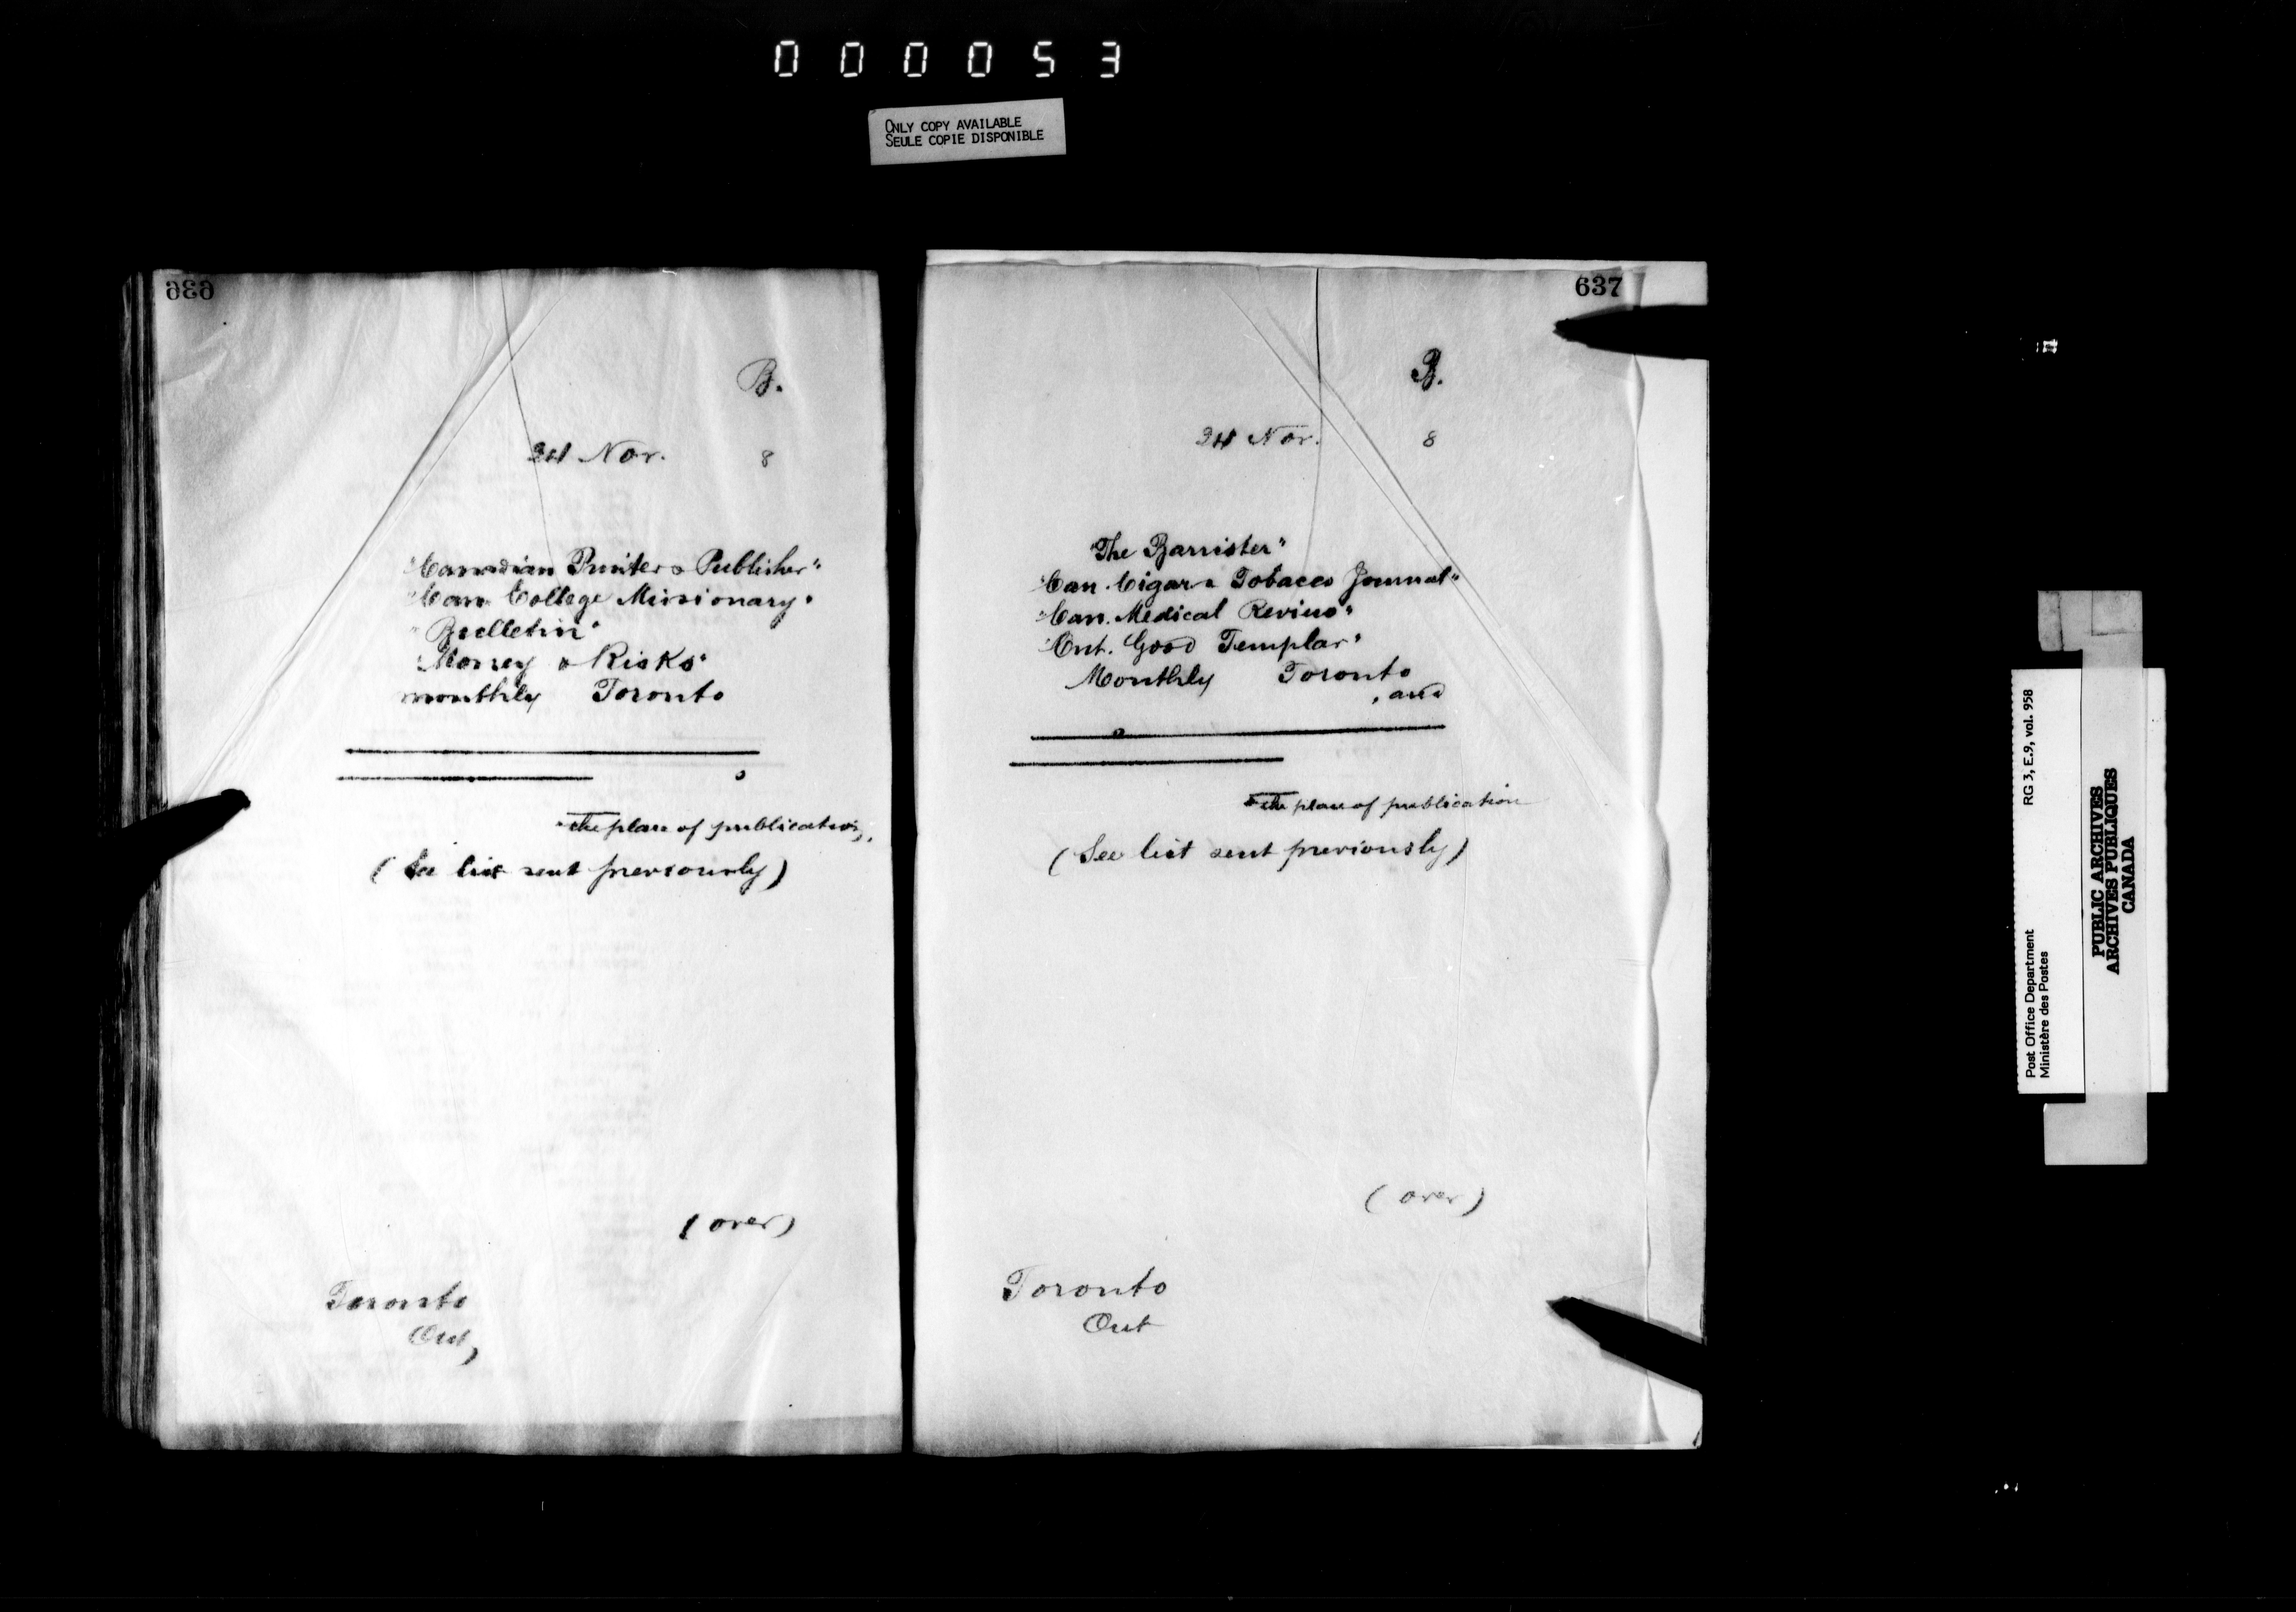 000053
ONLY COPY AVAILABLE
SEULE COPIE DISPONIBLE
636
B.
24 Nov. 8
"Canadian Printer & Publisher"
"Can. College Missionary"
"Bulletin"
"Money & Risks"
monthly Toronto
the place of publication,
(See list sent previously)
(over)
Toronto
Ont,
637
B.
24 Nov. 8
"The Barrister"
"Can. Cigar & Tobacco Journal"
"Can. Medical Review"
"Ont. Good Templar"
Monthly Toronto
, and
the place of publication
(See list sent previously)
(over)
Toronto
Ont
RG 3, E.9, vol. 958
Post Office Department
Ministère des Postes
PUBLIC ARCHIVES
ARCHIVES PUBLIQUES
CANADA